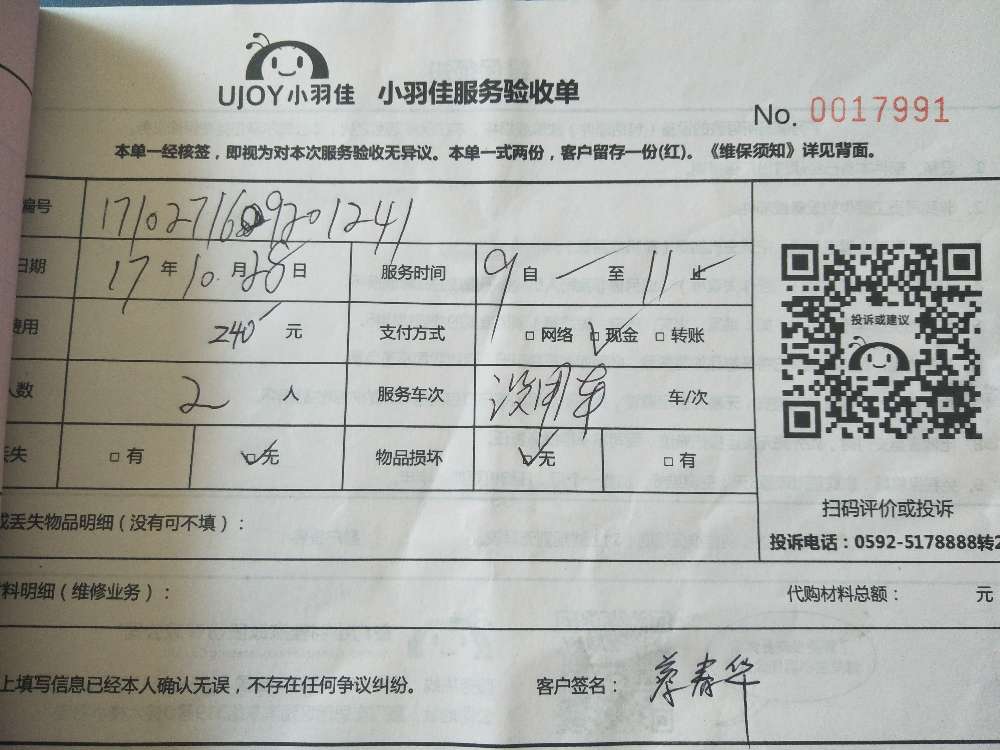 UJOY小羽佳 小羽佳服务验收单
No. 0017991
本单一经核签，即视为对本次服务验收无异议。本单一式两份，客户留存一份(红)。《维保须知》详见背面。
编号 17102716 09201241
日期 17 年 10 月 28 日 服务时间 9 自 至 11 止
费用 240 元 支付方式 □ 网络 ☑ 现金 □ 转账
人数 2 人 服务车次 没用车 车/次
丢失 □ 有 ☑ 无 物品损坏 ☑ 无 □ 有
投诉或建议
扫码评价或投诉
投诉电话：0592-5178888转2
或丢失物品明细（没有可不填）：
材料明细（维修业务）： 代购材料总额： 元
上填写信息已经本人确认无误，不存在任何争议纠纷。 客户签名： 蔡春华